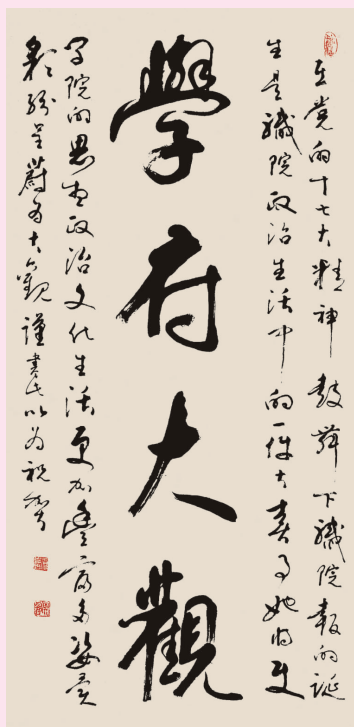 在党的十七大精神鼓舞下职院报的诞
生是职院政治生活中的一件大喜事她将使
學府大觀
学院的思想政治文化生活更加豐富多姿異
彩纷呈蔚为大觀謹書此以为祝賀